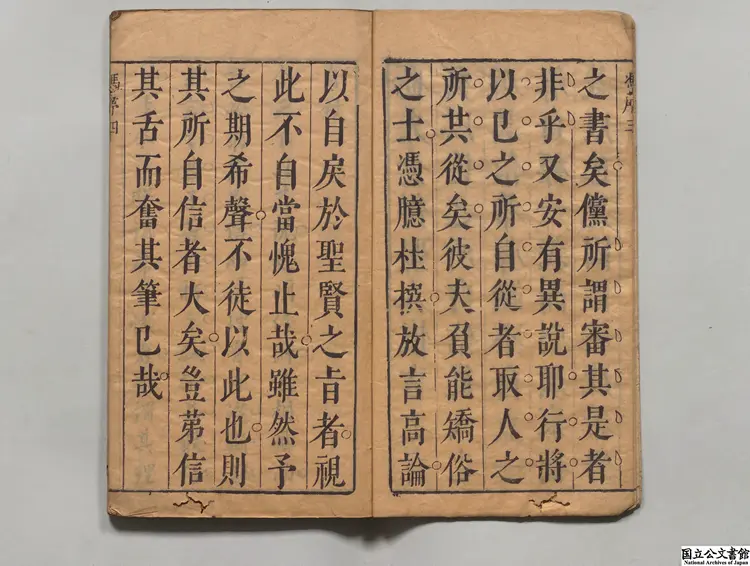 之書矣儻所謂審其是者
非乎又安有異說耶行將
以已之所自從者取人之
所共從矣彼夫負能矯俗
之士憑臆杜撰放言高論
以自戾於聖賢之旨者視
此不自當愧止哉雖然予
之期希聲不徒以此也則
其所自信者大矣豈苐信
其舌而奮其筆已哉
馮序四
国立公文書館
National Archives of Japan